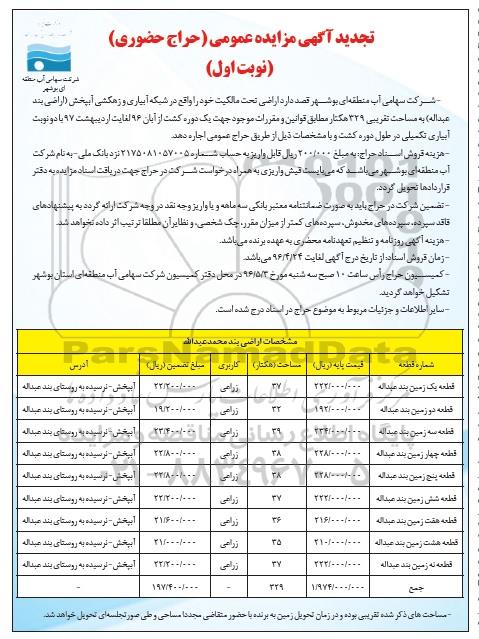 تجدید آگهی مزایده عمومی (حراج حضوری)
(نوبت اول)
شرکت سهامی آب منطقه
ای بوشهر
-شرکت سهامی آب منطقه‌ای بوشهر قصد دارد اراضی تحت مالکیت خود را واقع در شبکه آبیاری و زهکشی آبپخش (اراضی بند
عبداله) به مساحت تقریبی ۳۲۹ هکتار مطابق قوانین و مقررات موجود جهت یک دوره کشت از آبان ۹۶ لغایت اردیبهشت ۹۷ با دو نوبت
آبیاری تکمیلی در طول دوره کشت و با مشخصات ذیل از طریق حراج عمومی اجاره دهد.
-هزینه فروش اسناد حراج: به مبلغ ۲۰۰/۰۰۰ ریال قابل واریز به حساب شماره ۲۱۷۵۰۸۱۰۵۷۰۰۵ نزد بانک ملی- به نام شرکت
آب منطقه‌ای بوشهر می‌باشد که می‌بایست فیش واریزی به همراه درخواست شرکت در حراج جهت دریافت اسناد مزایده به دفتر
قراردادها تحویل گردد.
-تضمین شرکت در حراج باید به صورت ضمانتنامه معتبر بانکی سه ماهه و یا واریز وجه نقد در وجه شرکت ارائه گردد به پیشنهادهای
فاقد سپرده، سپرده‌های مخدوش، سپرده‌های کمتر از میزان مقرر، چک شخصی، و نظایر آن مطلقا ترتیب اثر داده نخواهد شد.
-هزینه آگهی روزنامه و تنظیم تعهدنامه محضری به عهده برنده می‌باشد.
-زمان فروش اسناد: از تاریخ درج آگهی لغایت ۹۶/۴/۲۴ می‌باشد.
-کمیسیون حراج رأس ساعت ۱۰ صبح سه شنبه مورخ ۹۶/۵/۳ در محل دفتر کمیسیون شرکت سهامی آب منطقه‌ای استان بوشهر
تشکیل خواهد گردید.
-سایر اطلاعات و جزئیات مربوط به موضوع حراج در اسناد درج شده است.
مشخصات اراضی بند محمد عبدالله
شماره قطعه قیمت پایه (ریال) مساحت (هکتار) کاربری مبلغ تضمین (ریال) آدرس
قطعه یک زمین بند عبداله ۲۲۲/۰۰۰/۰۰۰ ۳۷ زراعی ۲۲/۲۰۰/۰۰۰ آبپخش- نرسیده به روستای بند عبداله
قطعه دو زمین بند عبداله ۱۹۲/۰۰۰/۰۰۰ ۳۲ زراعی ۱۹/۲۰۰/۰۰۰ آبپخش- نرسیده به روستای بند عبداله
قطعه سه زمین بند عبداله ۲۳۴/۰۰۰/۰۰۰ ۳۹ زراعی ۲۳/۴۰۰/۰۰۰ آبپخش- نرسیده به روستای بند عبداله
قطعه چهار زمین بند عبداله ۲۲۸/۰۰۰/۰۰۰ ۳۸ زراعی ۲۲/۸۰۰/۰۰۰ آبپخش- نرسیده به روستای بند عبداله
قطعه پنج زمین بند عبداله ۲۲۸/۰۰۰/۰۰۰ ۳۸ زراعی ۲۲/۸۰۰/۰۰۰ آبپخش- نرسیده به روستای بند عبداله
قطعه شش زمین بند عبداله ۲۲۲/۰۰۰/۰۰۰ ۳۷ زراعی ۲۲/۲۰۰/۰۰۰ آبپخش- نرسیده به روستای بند عبداله
قطعه هفت زمین بند عبداله ۲۱۶/۰۰۰/۰۰۰ ۳۶ زراعی ۲۱/۶۰۰/۰۰۰ آبپخش- نرسیده به روستای بند عبداله
قطعه هشت زمین بند عبداله ۲۱۰/۰۰۰/۰۰۰ ۳۵ زراعی ۲۱/۰۰۰/۰۰۰ آبپخش- نرسیده به روستای بند عبداله
قطعه نه زمین بند عبداله ۲۲۲/۰۰۰/۰۰۰ ۳۷ زراعی ۲۲/۲۰۰/۰۰۰ آبپخش- نرسیده به روستای بند عبداله
جمع ۱/۹۷۴/۰۰۰/۰۰۰ ۳۲۹ - ۱۹۷/۴۰۰/۰۰۰ -
-مساحت های ذکر شده تقریبی بوده و در زمان تحویل زمین به برنده با حضور متقاضی مجددا مساحی و طی صورتجلسه‌ای تحویل خواهد شد.
ParsNamadData
پایگاه اطلاع رسانی مناقصه و مزایده